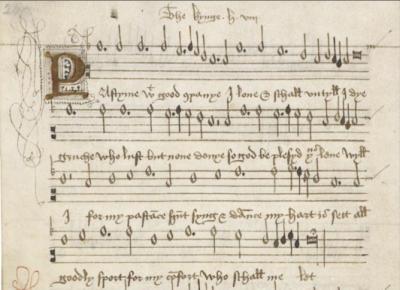 The kynge . h . viii
Pastyme wt good companye I loue & schall vntyll I dye
gruche who lust but none denye so god be plesyd þus loue wyll
I for my pastance hunt syng & dance my hart is sett all
goodly sport for my cofort who schall me let